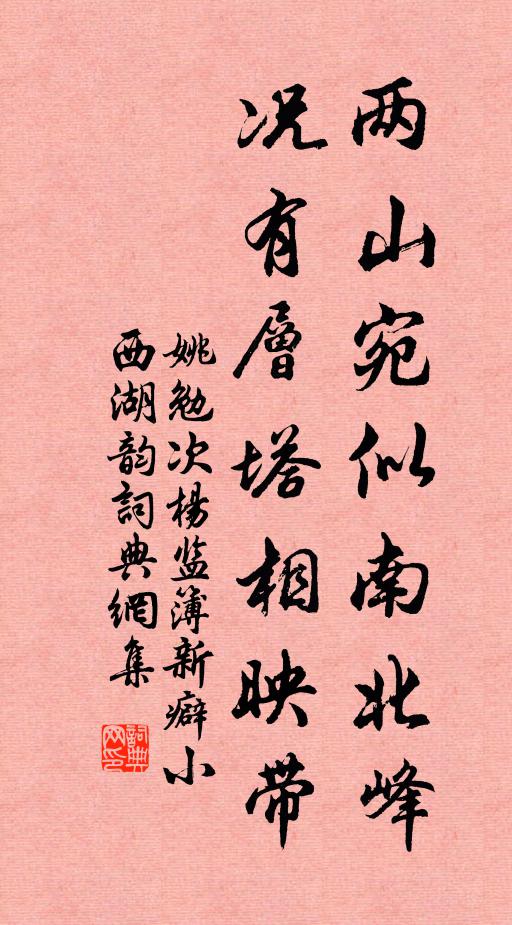 两山宛似南北峰
况有層塔相映带
姚勉次楊监簿新癖小
西湖韵詞典網集
詞典网印